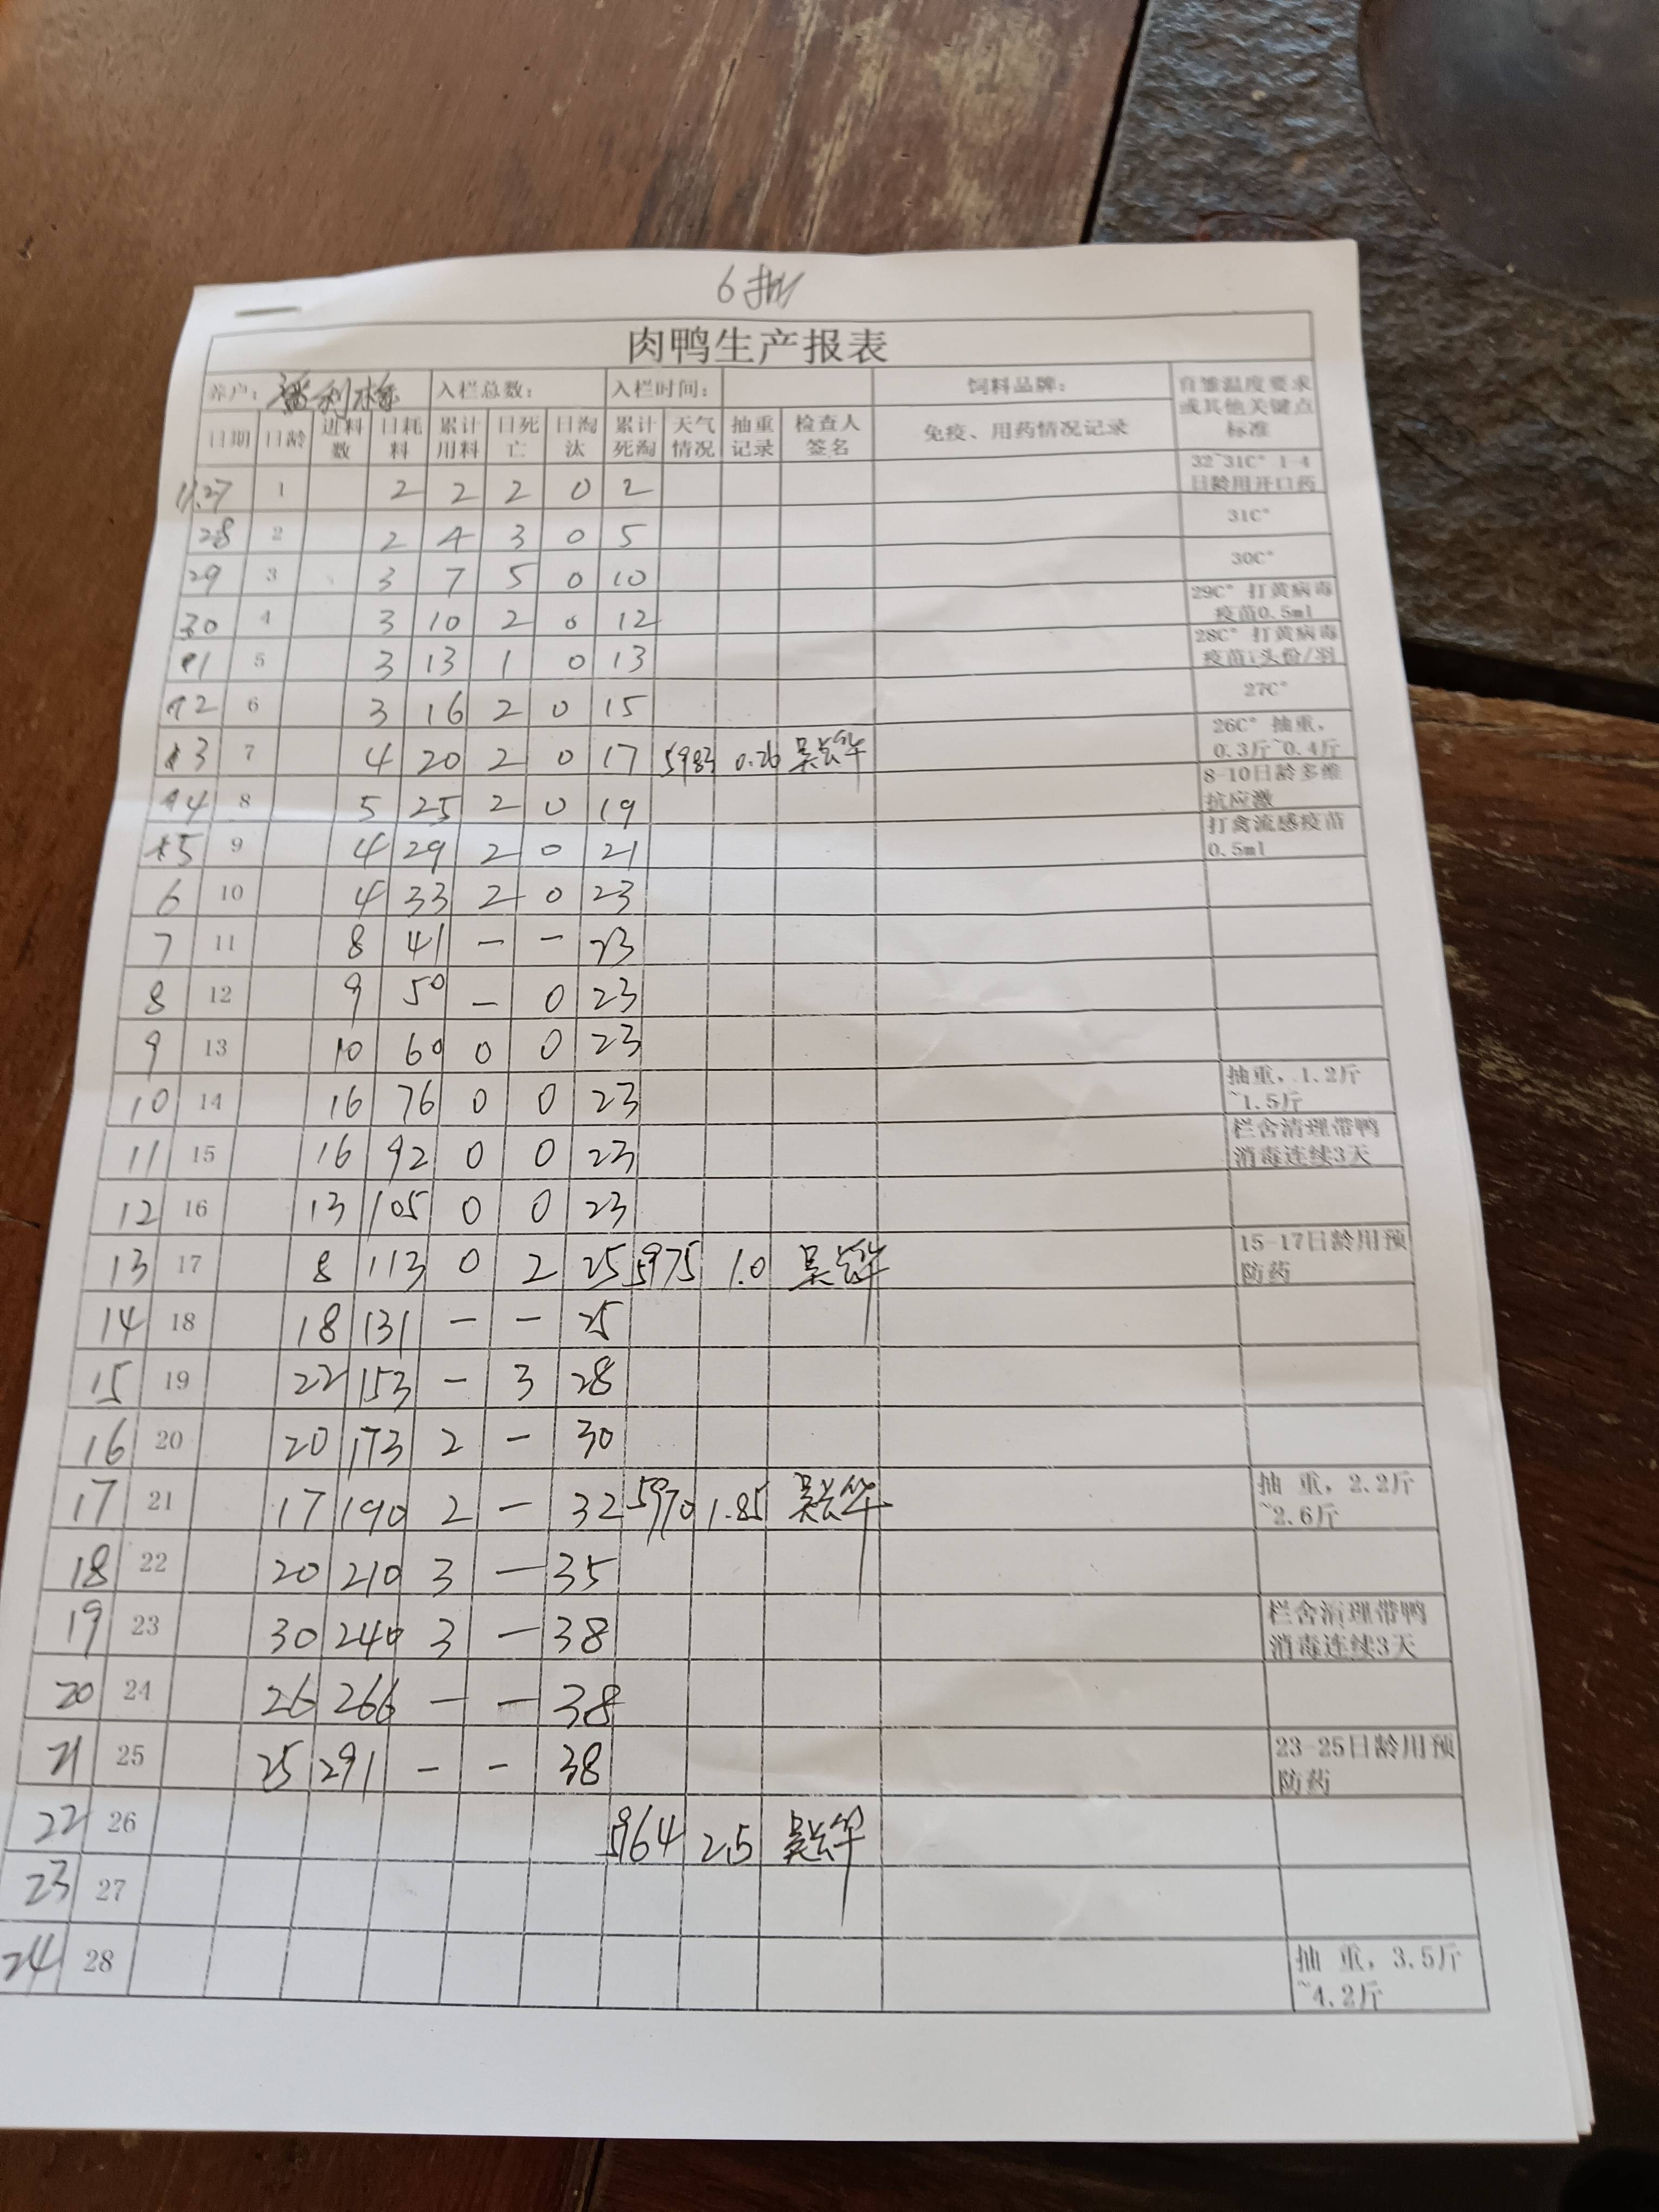 6批
肉鸭生产报表
养户: 潘利梅 入栏总数: 入栏时间: 饲料品牌: 育雏温度要求或其他关键点标准
日期 日龄 进料数 日耗料 累计用料 日死亡 日淘汰 累计死淘 天气情况 抽重记录 检查人签名 免疫、用药情况记录
11.27 1 2 2 2 0 2 32~31C° 1-4日龄用开口药
28 2 2 4 3 0 5 31C°
29 3 3 7 5 0 10 30C°
30 4 3 10 2 0 12 29C° 打黄病毒疫苗0.5ml
1 5 3 13 1 0 13 28C° 打黄病毒疫苗1头份/羽
2 6 3 16 2 0 15 27C°
3 7 4 20 2 0 17 5983 0.26 吴长华 26C° 抽重,0.3斤~0.4斤
4 8 5 25 2 0 19 8-10日龄多维抗应激
5 9 4 29 2 0 21 打禽流感疫苗0.5ml
6 10 4 33 2 0 23
7 11 8 41 - - 23
8 12 9 50 - 0 23
9 13 10 60 0 0 23
10 14 16 76 0 0 23 抽重, 1.2斤~1.5斤
11 15 16 92 0 0 23 栏舍清理带鸭消毒连续3天
12 16 13 105 0 0 23
13 17 8 113 0 2 25 5975 1.0 吴长华 15-17日龄用预防药
14 18 18 131 - - 25
15 19 22 153 - 3 28
16 20 20 173 2 - 30
17 21 17 190 2 - 32 5970 1.85 吴长华 抽 重, 2.2斤~2.6斤
18 22 20 210 3 - 35
19 23 30 240 3 - 38 栏舍清理带鸭消毒连续3天
20 24 26 266 - - 38
21 25 25 291 - - 38 23-25日龄用预防药
22 26 5964 2.5 吴长华
23 27
24 28 抽 重, 3.5斤~4.2斤